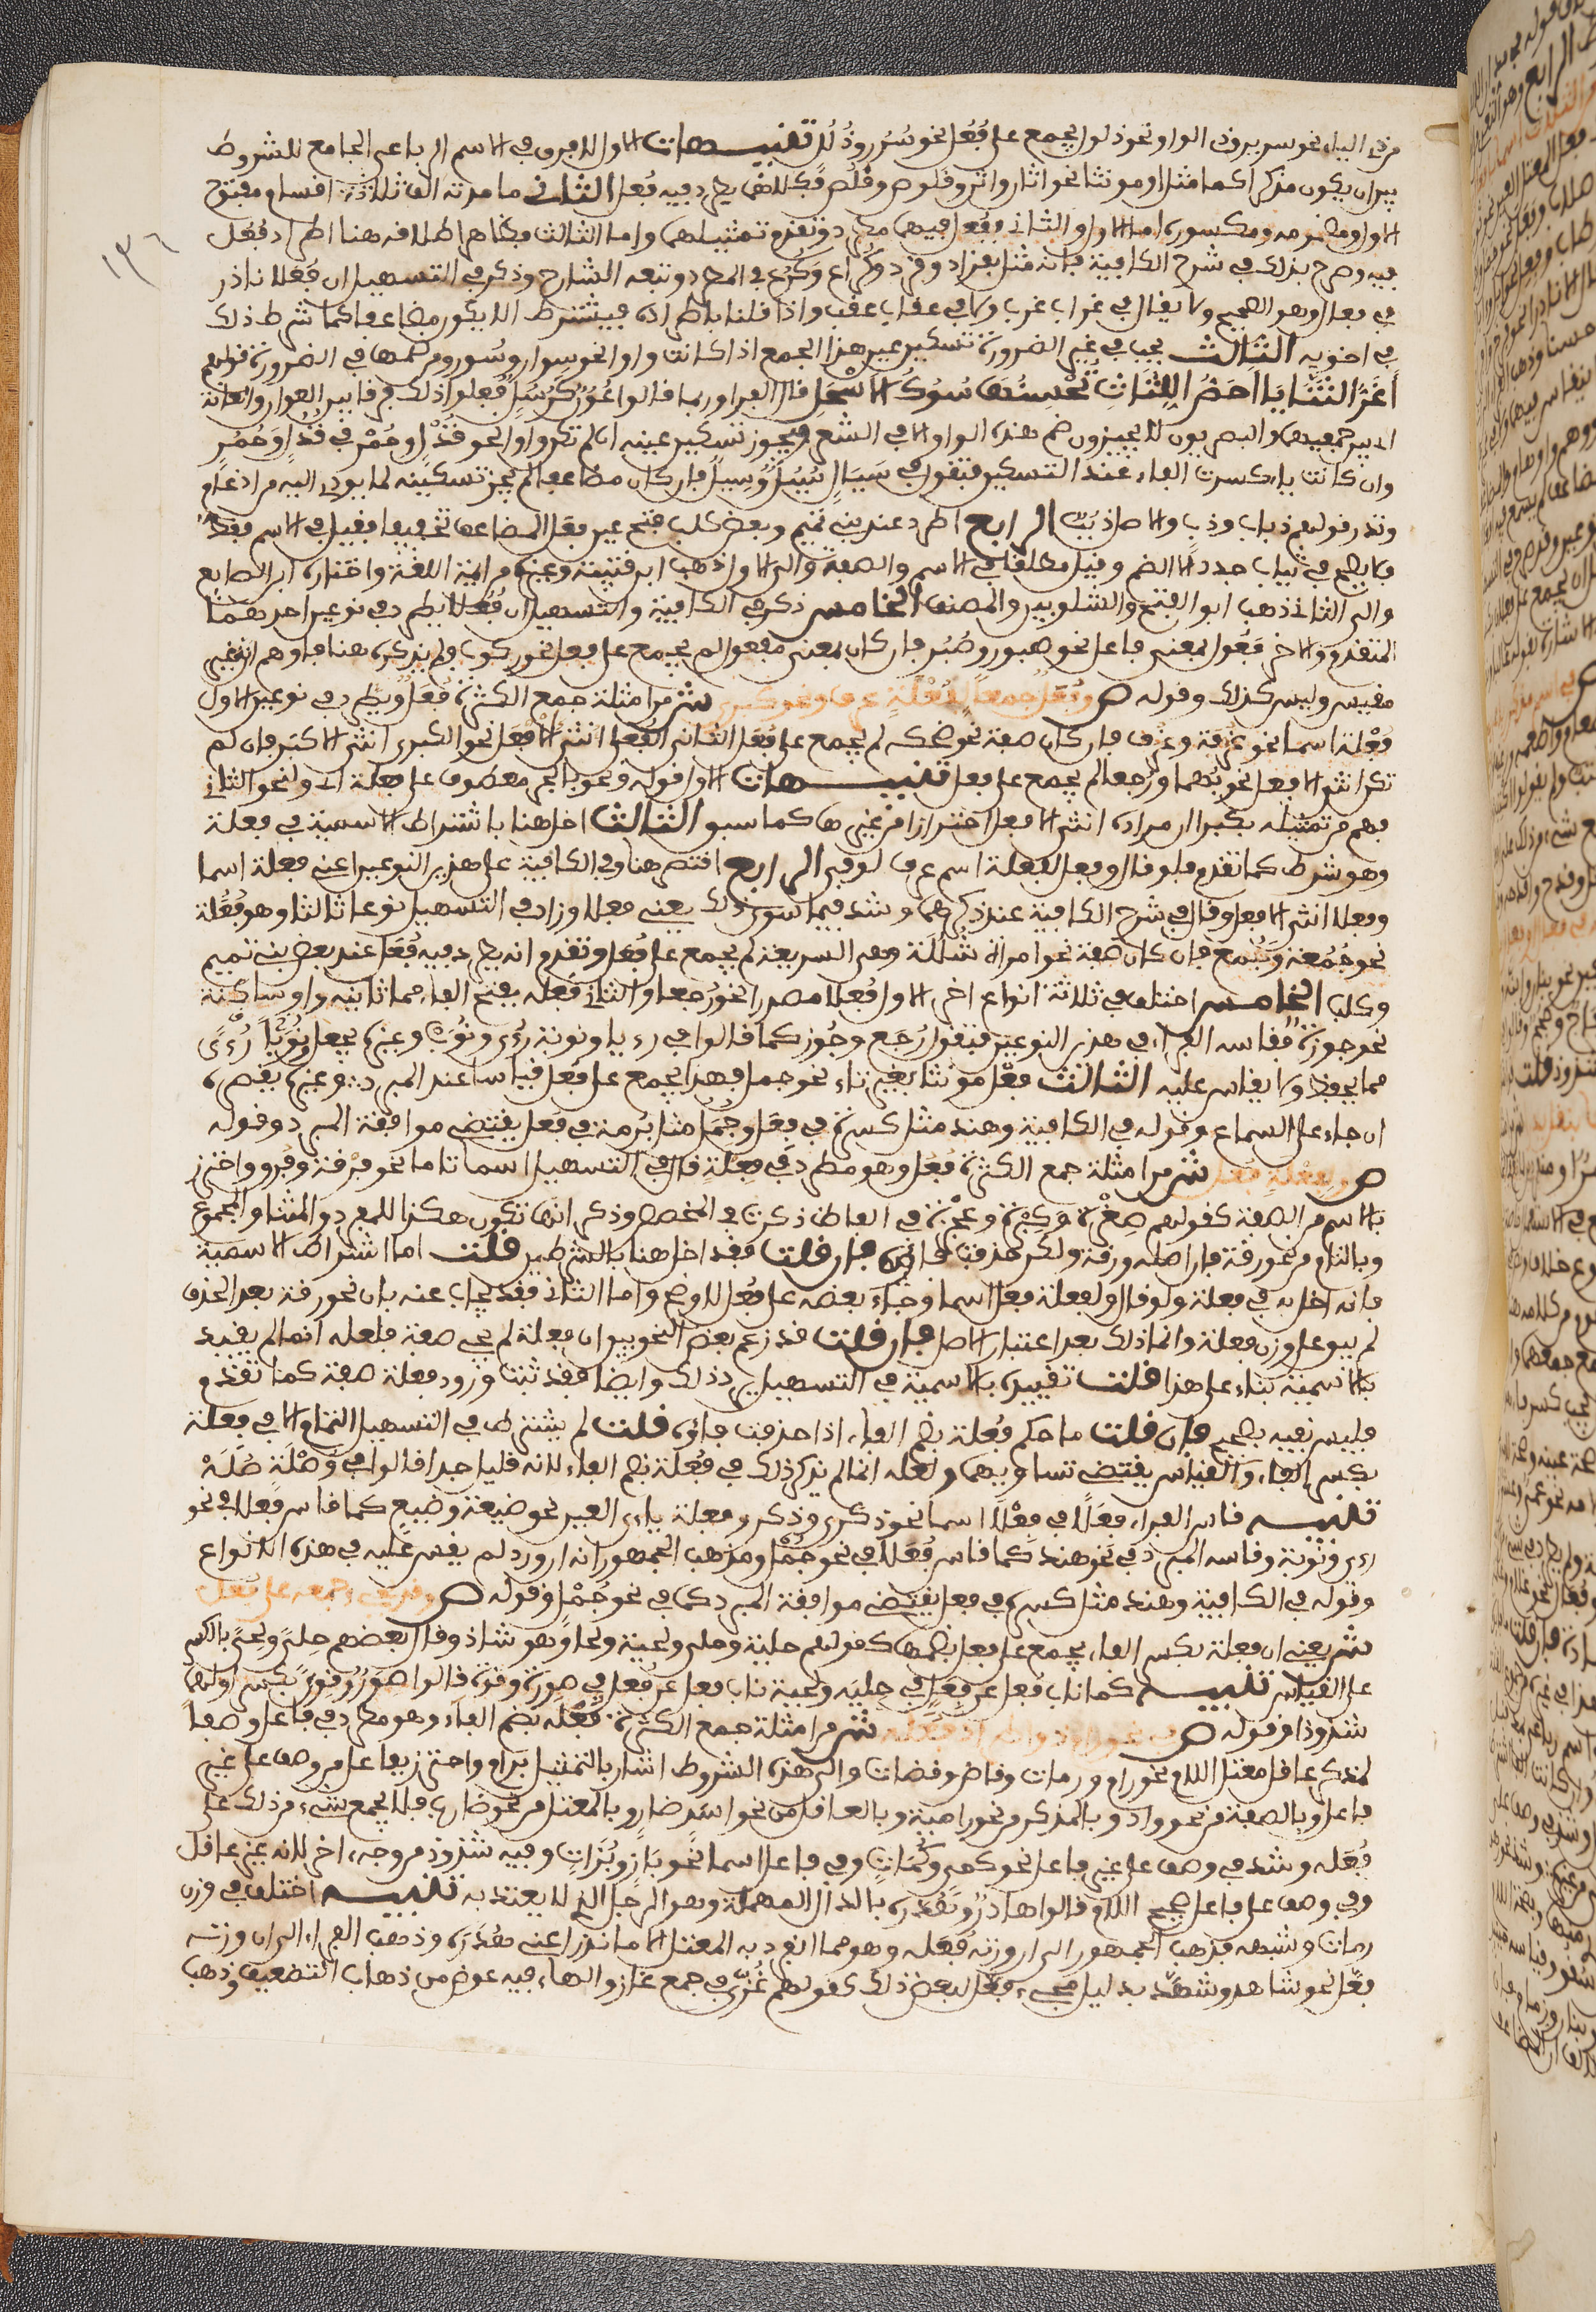 قرن الياء نحو سرير وفى الواو نحو ذلول يجمع على فُعُل نحو سُرُر وذُلُل تنبيهات الاول لا فرق في الاسم الرباعي الجامع للشروط
بين ان يكون مذكرا كما مثل او مونثا نحو اتان واتن وقلوص وقُلُص فكلاهما يطرد فيه فُعُل الثاني ما مدته الف ثلاثة اقسام مفتوح
الاول ومضمومه ومكسوره اما الاول والثاني وفُعُل فيهما مطرد وتقدم تمثيلهما واما الثالث فظاهر اطلاقه هنا اطراد فُعُل
فيه وصرح بذلك في شرح الكافية فانه مثل بقراد وقرد وكُراع وكُرُع في المطرد وتبعه الشارح وذكر في التسهيل ان فُعُلا نادر
في فعال وهو الصحيح ولا يقال في غراب غرب ولا في عقاب عقب واذا قلنا باطراده فيشترط الا يكون مضاعفا كما شرط ذلك
في اخويه الثالث يجب في غير الضرورة تسكين عين هذا الجمع اذا كانت واوا نحو سوار وسُور ومن ضمها في الضرورة قولهم
اغر الثنايا احم اللثاث تحسنه سوك الاسحل قال الفراء وربما قالوا عُوُن كرُسُل ففعلوا ذلك فرقا بين العوان والعانة
لا بين جمعيهما والبصريون لا يجيزون ضم هذه الواو الا في الشعر ويجوز تسكين عينه ان لم تكن واوا نحو قُذْل وحُمْر في قُذُل وحُمُر
وان كانت ياء كسرت الفاء عند التسكين فتقول في سَيَال سُيُل وسِيل فان كان مضاعفا لم يجز تسكينه لما يودي اليه من ادغام
وندر قولهم ذباب وذب والاصل ذُبُب الرابع اطرد عند بني تميم وبعض كلب فتح عين فعل المضاعف تخفيفا فقيل في الاسم فقط
فلا يصح في ثياب جدد الا الضم وقيل مطلقا في الاسم والصفة والى الاول ذهب ابن قتيبة وغيره من ايمة اللغة واختاره ابن الضايع
والى الثاني ذهب ابو الفتح والشلوبين والمصنف الخامس ذكر في الكافية والتسهيل ان فُعُلا يطرد في نوعين احدهما
المتقدم والاخر فَعُول بمعنى فاعل نحو صبور وصُبُر فان كان بمعنى مفعول لم يجمع على فعل نحو ركوب ولم يذكره هنا فاوهم انه غير
مقيس وليس كذلك وقوله ص وفُعَلٌ جمعا لفُعْلَةٍ عرف ونحو كبرى ش من امثلة جمع الكثرة فُعَل ويطرد في نوعين الاول
فُعْلة اسما نحو غرفة وغرف فان كان صفة نحو ضحكة لم يجمع على فُعَل الثاني الفُعلى انثى الافعل نحو الكبرى انثى الاكبر فان لم
تكن انثى الافعل نحو بُهمى ورُجعى لم يجمع على فعل تنبيهات الاول قوله ونحو بالجر معطوف على فعلة اي ولنحو الثاني
فهم من تمثيله بكبرى ان مراده انثى الافعل احترازا من غيرها كما سبق الثالث اخل هنا باشتراط الاسمية في فعلة
وهو شرط كما تقدم فلو قال وفعل لفعلة اسم عرف لوفى الرابع اقتصر هنا وفي الكافية على هذين النوعين اعني فعلة اسما
وفعلى انثى الافعل وقال في شرح الكافية عند ذكرهما وشذ فيما سوى ذلك يعني فعلا وزاد في التسهيل نوعا ثالثا وهو فُعُلة
نحو جُمُعة وجُمَع فان كان صفة نحو امرأة شُلُلة وهي السريعة لم يجمع على فُعَل وتقدم انه يطرد فيه فُعَل عند بعض بني تميم
وكلب الخامس اختلف في ثلاثة انواع اخر الاول فُعلى مصدرا نحو رُجعى والثاني فَعلة بفتح الفاء مما ثانيه واو ساكنة
نحو جوزة فقاسه الفراء في هذين النوعين فتقول رُجَع وجُوَز كما قالوا في رءيا ونوبة رُؤى ونُوَب وغيره يجعل نُوَبا رُؤًى
مما يحفظ ولا يقاس عليه الثالث فُعْل مونثا بغير تاء نحو جمل فهذا يجمع على فُعَل قياسا عند المبرد وغيره يقصره
ان جاء على السماع وقوله في الكافية وهند مثل كسرة في فِعَل وجُمْل مثل بُرمة في فُعَل يقتضي موافقة المبرد وقوله
ص ولفِعْلةٍ فِعَل ش من امثلة جمع الكثرة فِعَل وهو مطرد في فِعْلةٍ قال في التسهيل اسما تاما نحو فِرْقة وفِرَق واحترز
بالاسم من الصفة كقولهم صِغْرة وكِبْرة وعِجْزة في الفاظ ذكرت في المخصص وذكر انها تكون هكذا للمفرد والمثنى والمجموع
وبالتام من نحو رقة فان اصله ورقة ولكن حذفت فاؤه فان قلت فقد اخل هنا بالشرطين قلت اما اشتراط الاسمية
فانه اخل به في فعلة ولو قال ولفعلة فعل اسما وجاء بعضه على فُعَل لاوضح واما الثاني فقد يجاب عنه بان نحو رقة بعد الحذف
لم يبق على وزن فعلة وانما ذلك بعد اعتبار الاصل فان قلت قد زعم بعض النحويين ان فعلة لم يجي صفة فلعله انما لم يقيد
بالاسمية بناء على هذا قلت تقييده بالاسمية في التسهيل يرد ذلك وايضا فقد ثبت ورود فعلة صفة كما تقدم
فليس نفيه بصحيح فان قلت ما حكم فُعلة بضم الفاء اذا حذفت فاؤه قلت لم يشترط في التسهيل التمام الا في فعلة
بكسر الفاء والقياس يقتضي تساويهما ولعله انما لم يذكر ذلك في فُعلة بضم الفاء لانه قليل جدا قالوا في وُصْلَة صُلَة
تنبيه قاس الفراء فِعَلًا في فِعْلى اسما نحو ذكرى وذكر وفعلة ياءي العين نحو ضيعة وضيع كما قاس فُعَلا في نحو
رءى ونَوْبة وقاسه المبرد في نحو هند كما قاس فُعَلا في نحو جُمْل ومذهب الجمهور انه ان ورد لم يقس عليه في هذه الانواع
وقوله في الكافية وهند مثل كسرة في فعل يقتضي موافقة المبرد كما في نحو جُمْل وقوله ص وقد يجيء جمعه على فُعَل
ش يعني ان فعلة بكسر الفاء يجمع على فعل بضمها كقولهم حلية وحلى ولحية ولحى وهو شاذ وقال بعضهم حِلى ولِحى بالكسر
على القياس تنبيه كما ناب فُعَل عن فِعَل في حِلية ولحية ناب فعل عن فُعَل في صورة وقوة قالوا صِوَر وقِوًى بكسر اولهما
شذوذا وقوله ص في نحو رام ذو اطراد فُعَله ش من امثلة جمع الكثرة فُعَلَة بضم الفاء وهو مطرد في فاعل وصفا
لمذكر عاقل معتل اللام نحو رام ورماة وقاض وقضاة والى هذه الشروط اشار بالتمثيل برام واحترز بفاعل من وصف على غير
فاعل وبالصفة من نحو واد وبالمذكر من نحو رامية وبالعاقل من نحو اسد ضار وبالمعتل من نحو ضارب فلا يجمع شيء من ذلك على
فُعَلة وشذ في وصف على غير فاعل نحو كمي وكُماة وفي فاعل اسما نحو باز وبُزاة وفيه شذوذ من وجه اخر لانه غير عاقل
وفي وصف على فاعل صحيح اللام قالوا هادر وهُدَرة بالدال المهملة وهو الرجل الذي لا يعتد به تنبيه اختلف في وزن
رماة وشبهه فذهب الجمهور الى ان وزنه فُعَلة وهو مما انفرد به المعتل الا ما ندر اعني هُدَرة وذهب الفراء الى ان وزنه
فُعَّل نحو شاهد وشُهَّد بدليل مجيء فُعَّل لبعض ذلك كقولهم غُزًّى في جمع غاز والهاء فيه عوض من ذهاب التضعيف وذهب
١٣٦